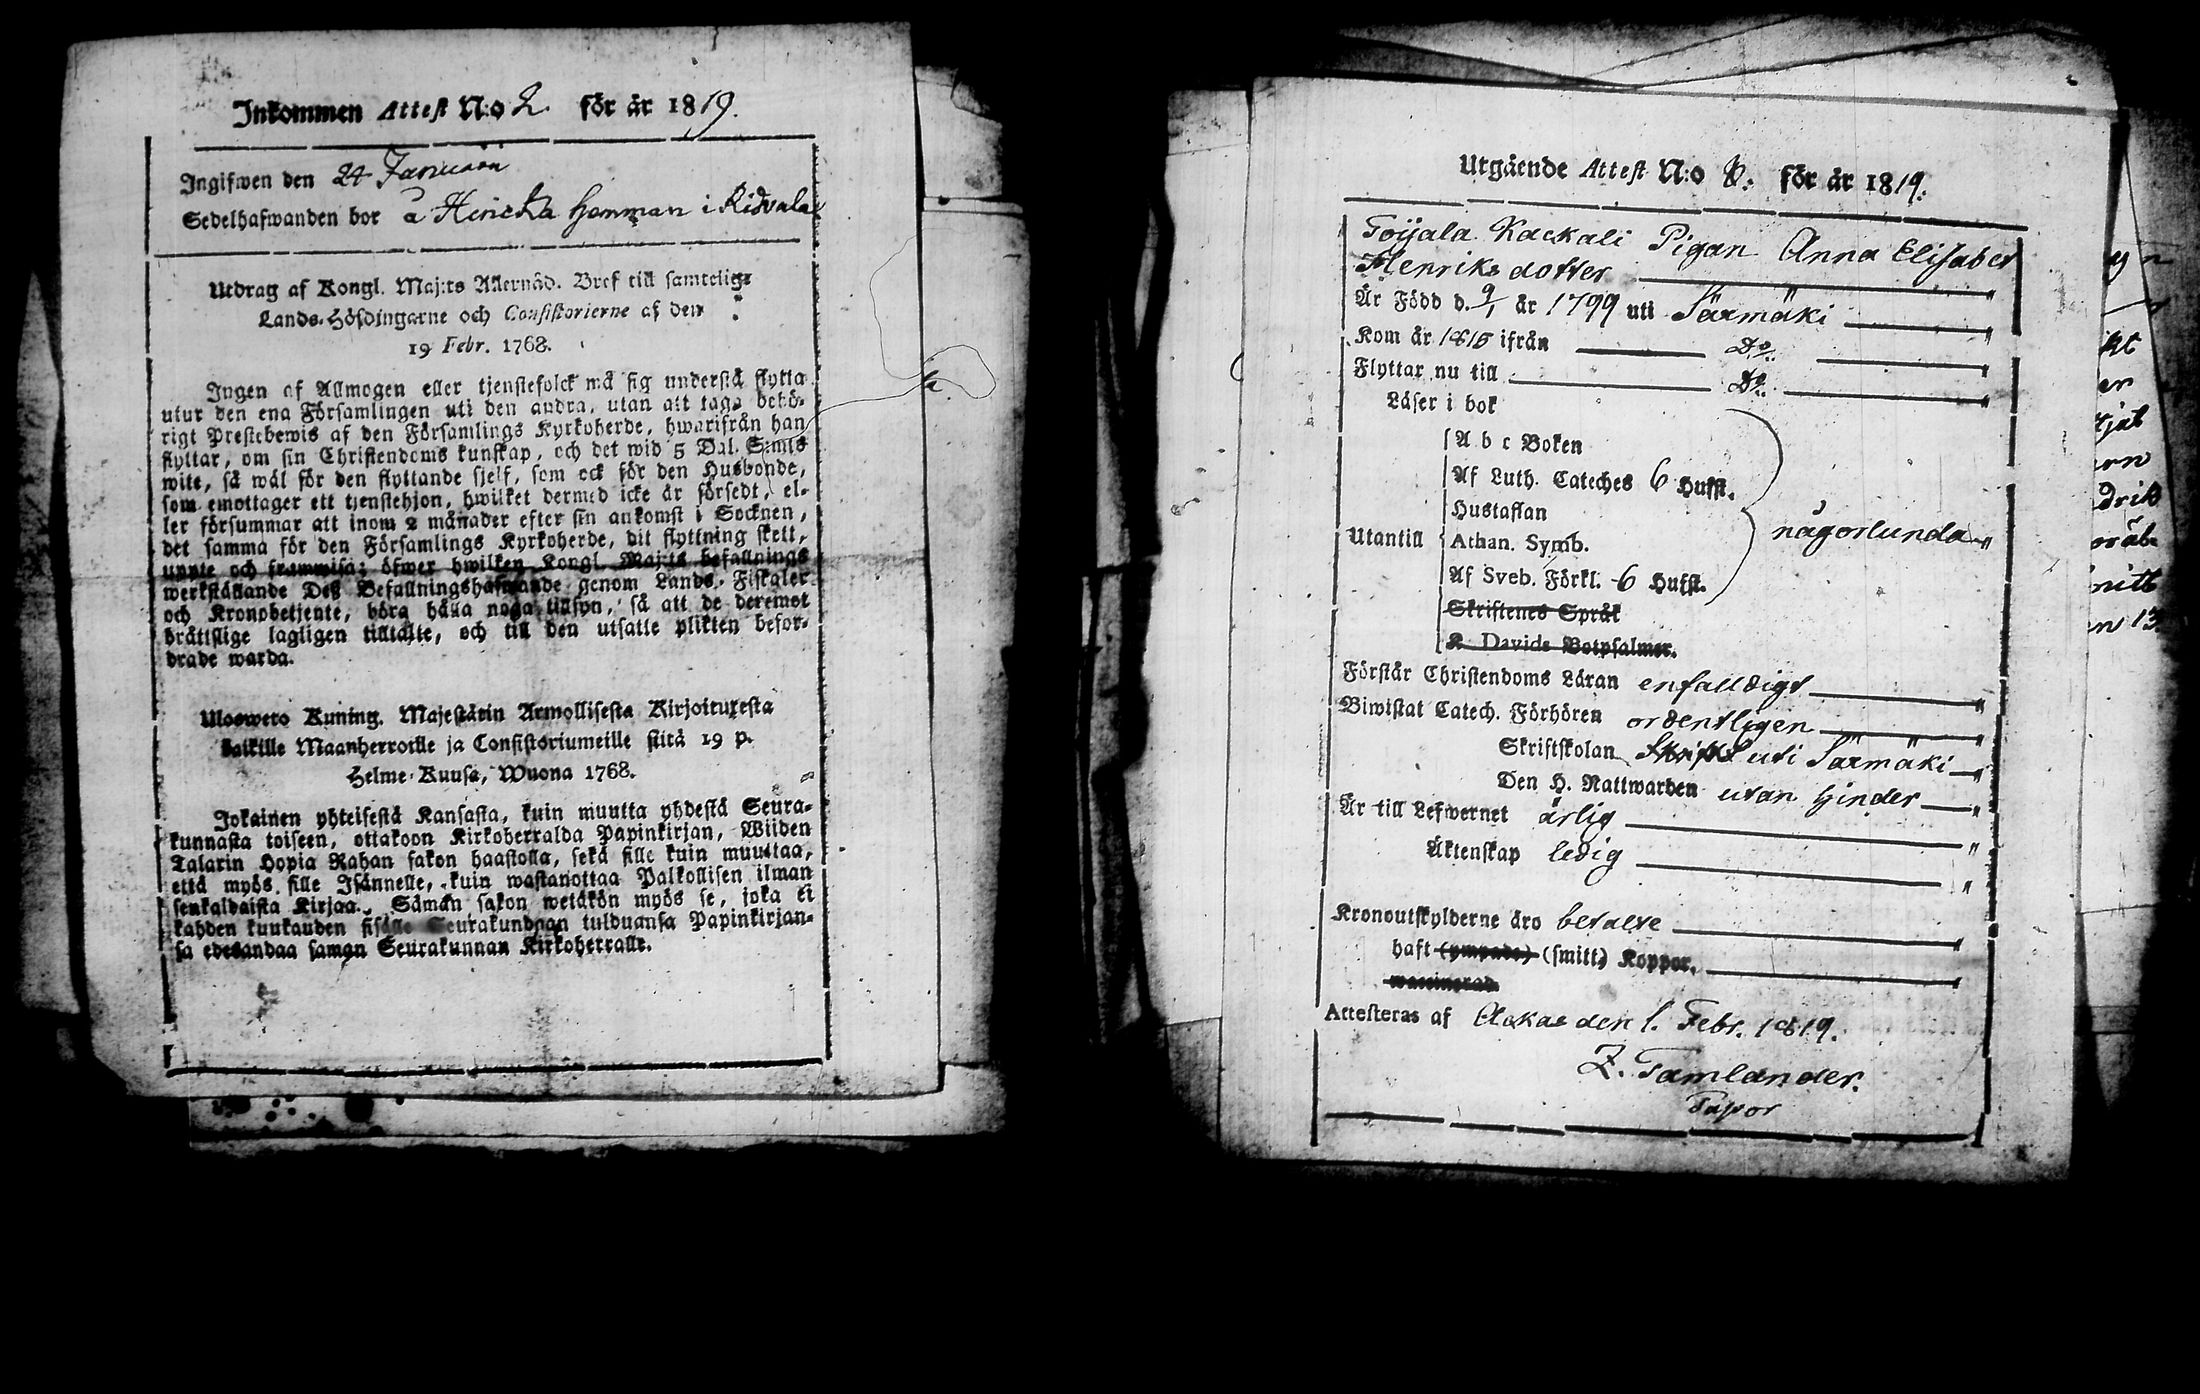 Inkommen Attest N:o 2. för år 1819.
Ingifwen den 24 Januarii
Sedelhafwanden bor å Hericka Hemman i Ridvala
Utdrag af Kongl. Maj:ts Allernåd. Bref till samtelige
Lands-Höfdingarne och Consistorierne af den
19 Febr. 1768.
Ingen af Allmogen eller tjenstefolck må sig understå flytta
utur den ena Församlingen uti den andra, utan att taga behö-
rigt Prestebewis af den Församlings Kyrkoherde, hwarifrån han
flyttar, om sin Christendoms kunskap, och det wid 5 Dal. S:mts
wite, så wäl för den flyttande sjelf, som ock för den Husbonde,
som emottager ett tjenstehjon, hwilket dermed icke är försedt, el-
ler försummar att inom 2 månader efter sin ankomst i Socknen,
det samma för den Församlings Kyrkoherde, dit flyttning skett,
uppte och frammisa; öfwer hwilken Kongl. Maj:ts befallnings
werkställande Deß Befallningshafwande genom Lands-Fiskaler
och Kronobetjente, böra hålla noga tillsyn, så att de deremot
bråttslige lagligen tilltalte, och till den utsatte plikten befor-
drade warda.
Uloswero Kuning. Majestätin Armollisesta Kirjoituxesta
kaikille Maanherroille ja Consistoriumeille siitä 19 p.
Helme-Kuusa, Wuona 1768.
Jokainen yhteisestä Kansasta, kuin muutta yhdestä Seura-
kunnasta toiseen, ottakoon Kirkoherralda Papinkirjan, Wiiden
Talarin Hopia Rahan sakon haastolla, sekä sille kuin muuttaa,
että myös sille Isännelle, kuin wastanottaa Palkollisen ilman
senkaldaista Kirjaa. Säman sakon wetäkön myös se, joka ei
kahden kuukauden sisälle Seurakundaan tulduansa Papinkirjan-
sa edesandaa saman Seurakunnan Kirkoherralle.
Utgående Attest N:o för år 1819.
Toijala Kackali Pigan Anna Elisabet
Henriksdotter
Är Född d. 9/1 år 1799 uti Särmäki
Kom år 1818 ifrån Do.
Flyttar nu till Do.
Läser i bok
A b c Boken
Af Luth. Cateches 6 Hufst.
Hustaflan
Utantill Athan. Symb. någorlunda
Af Sveb. Förkl. 6 Hufst.
Skriftenes Språk
2 Davids Botpsalmer.
Förstår Christendoms Läran enfalldigt
Biwistat Catech. Förhören ordentligen
Skriftskolan uti Särmäki
Den H. Nattwarden utan hinder
Är till Lefwernet ärlig
Äktenskap ledig
Kronoutskylderne äro betalte
haft (ympade) (smitt) Koppor.
waccinerad.
Attesteras af Ackas den 1. Febr. 1819.
Z. Tamlander.
Pastor